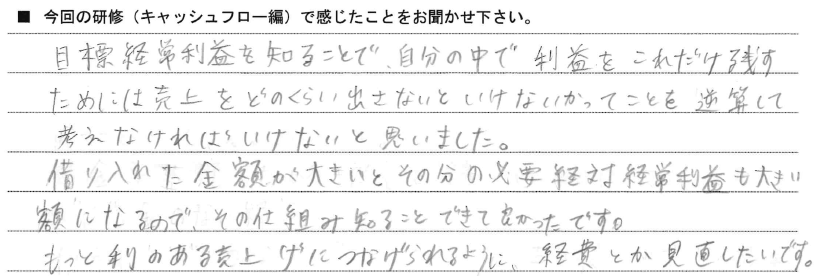 ■ 今回の研修（キャッシュフロー編）で感じたことをお聞かせ下さい。
目標経常利益を知ることで、自分の中で利益をこれだけ残す
ためには売上をどのくらい出さないといけないかってことを逆算して
考えなければいけないと思いました。
借り入れた金額が大きいとその分の必要経対経常利益も大きい
額になるので、その仕組み知ることできて良かったです。
もっと利のある売上げにつなげられるように、経費とか見直したいです。